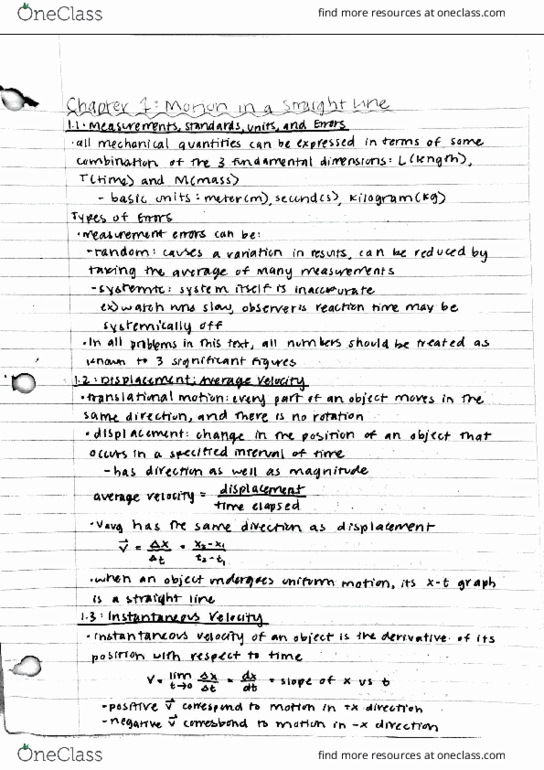 OneClass find more resources at oneclass.com
Chapter 1: Motion in a Straight Line
1.1: Measurements, standards, units, and Errors
·all mechanical quantities can be expressed in terms of some
combination of the 3 fundamental dimensions: L(length),
T(time) and M(mass)
- basic units: meter(m), second(s), kilogram(kg)
Types of Errors
·measurement errors can be:
-random: causes a variation in results, can be reduced by
taking the average of many measurements
-systemic: system itself is inaccurate
ex) watch runs slow, observer's reaction time may be
systemically off
·In all problems in this text, all numbers should be treated as
known to 3 significant figures
1.2: Displacement; Average Velocity
·translational motion: every part of an object moves in the
same direction, and there is no rotation
·displacement: change in the position of an object that
occurs in a specified interval of time
-has direction as well as magnitude
average velocity = displacement / time elapsed
·vavg has the same direction as displacement
v⃗ = Δx/Δt = x₂-x₁/t₂-t₁
·when an object undergoes uniform motion, its x-t graph
is a straight line
1.3: Instantaneous Velocity
·instantaneous velocity of an object is the derivative of its
position with respect to time
v = lim t→0 Δx/Δt = dx/dt = slope of x vs t
-positive v⃗ correspond to motion in +x direction
-negative v⃗ correspond to motion in -x direction
OneClass find more resources at oneclass.com